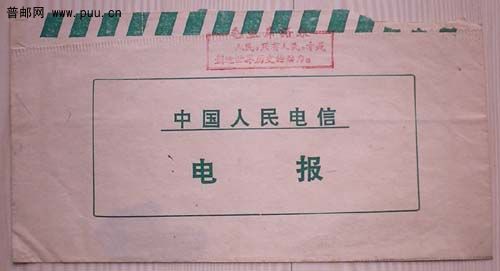 普邮网 www.puu.cn
人民，只有人民，才是
创造世界历史的动力。
中国人民电信
电报